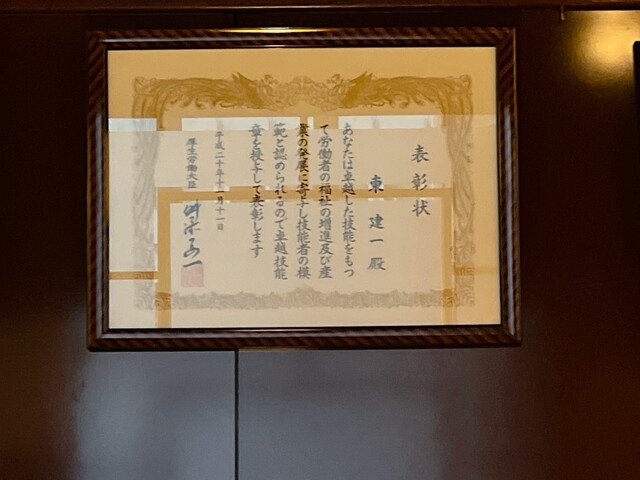 表彰状
東建一殿
あなたは卓越した技能をもつ
て労働者の福祉の増進及び産
業の発展に寄与し技能者の模
範と認められるので卓越技能
章を授与して表彰します
平成二十年十一月十一日
厚生労働大臣